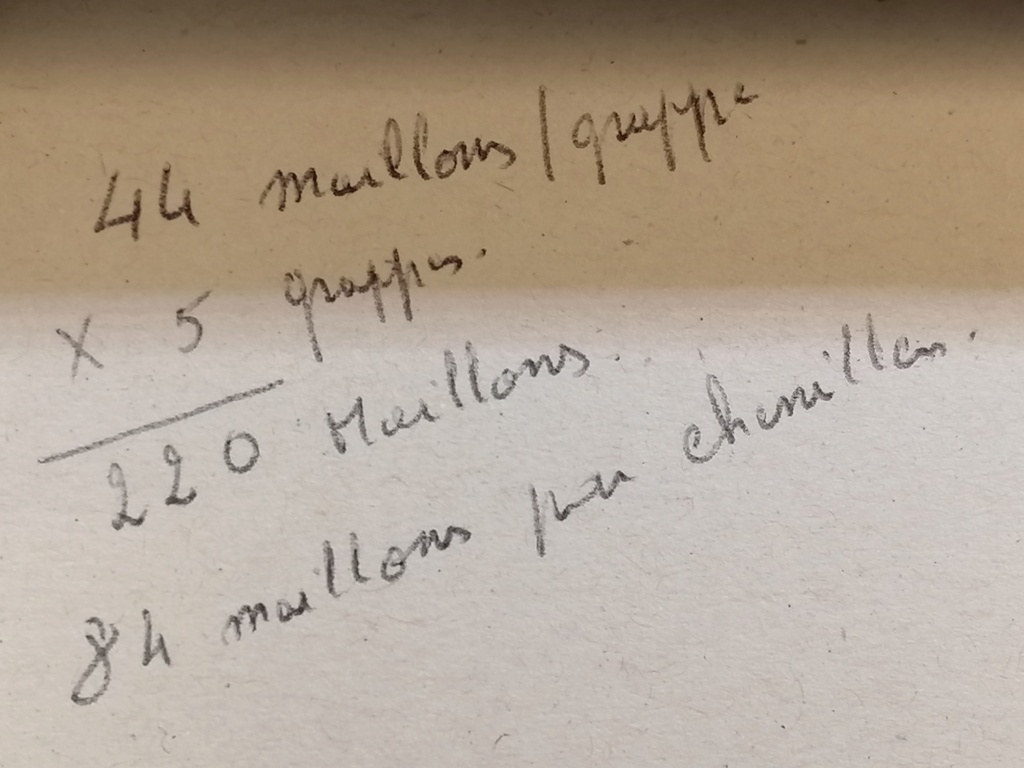 44 maillons/grappe
X 5 grappes.
220 Maillons.
84 maillons par chenilles.